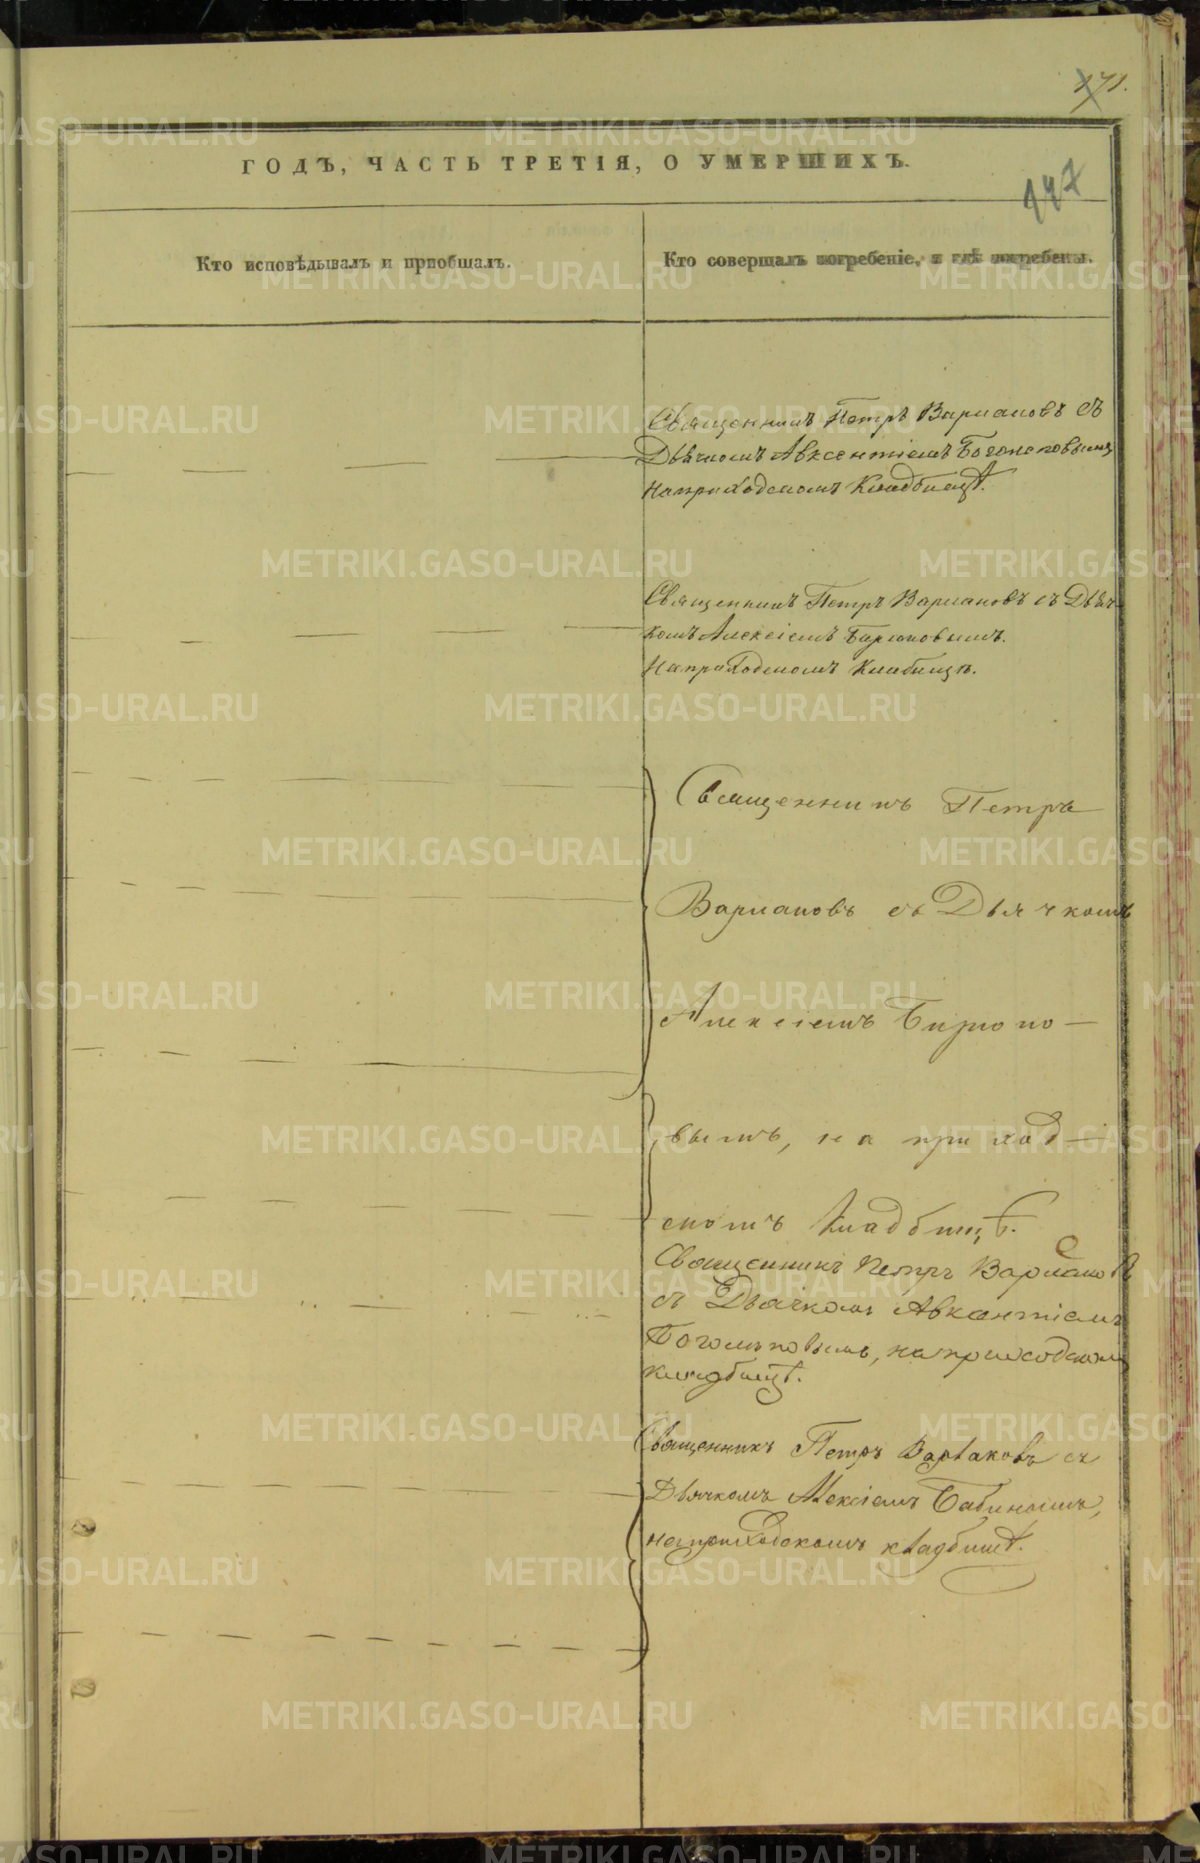 171.
ГОДЪ, ЧАСТЬ ТРЕТІЯ, О УМЕРШИХЪ.
147
Кто исповѣдывалъ и пріобщалъ.
Кто совершалъ погребеніе, и гдѣ погребены.
Священникъ Петръ Варлаковъ съ
Дьячкомъ Авксентіемъ
На приходскомъ Кладбищѣ.
Священникъ Петръ Варлаковъ съ Дьяч
комъ Алексіемъ Бирюковымъ.
На приходскомъ Клабищѣ.
Священникъ Петръ
Варлаковъ съ Дьячкомъ
Алексіемъ Бирюко-
вымъ, на приход-
скомъ Кладбищѣ.
Священникъ Петръ Варлаковъ
съ Дьячкомъ Авксентіемъ
на приходскомъ
кладбищѣ.
Священникъ Петръ Варлаковъ съ
Дьячкомъ Алексіемъ Бабинымъ,
на приходскомъ кладбищѣ.
METRIKI.GASO-URAL.RU